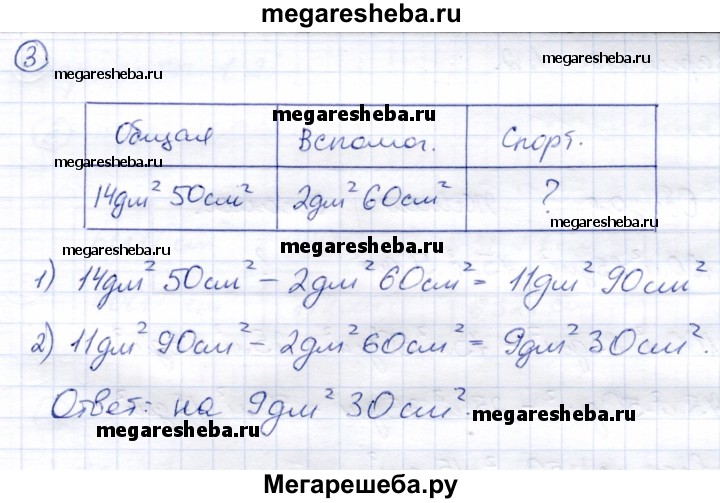 megaresheba.ru
3
megaresheba.ru megaresheba.ru
megaresheba.ru
Общая Вспомог. Спорт.
14дм² 50см² 2дм² 60см² ?
megaresheba.ru
megaresheba.ru megaresheba.ru
1) 14дм² 50см² – 2дм² 60см² = 11дм² 90см²
2) 11дм² 90см² – 2дм² 60см² = 9дм² 30см².
Ответ: на 9дм² 30см²
megaresheba.ru
megaresheba.ru
Мегарешеба.ру